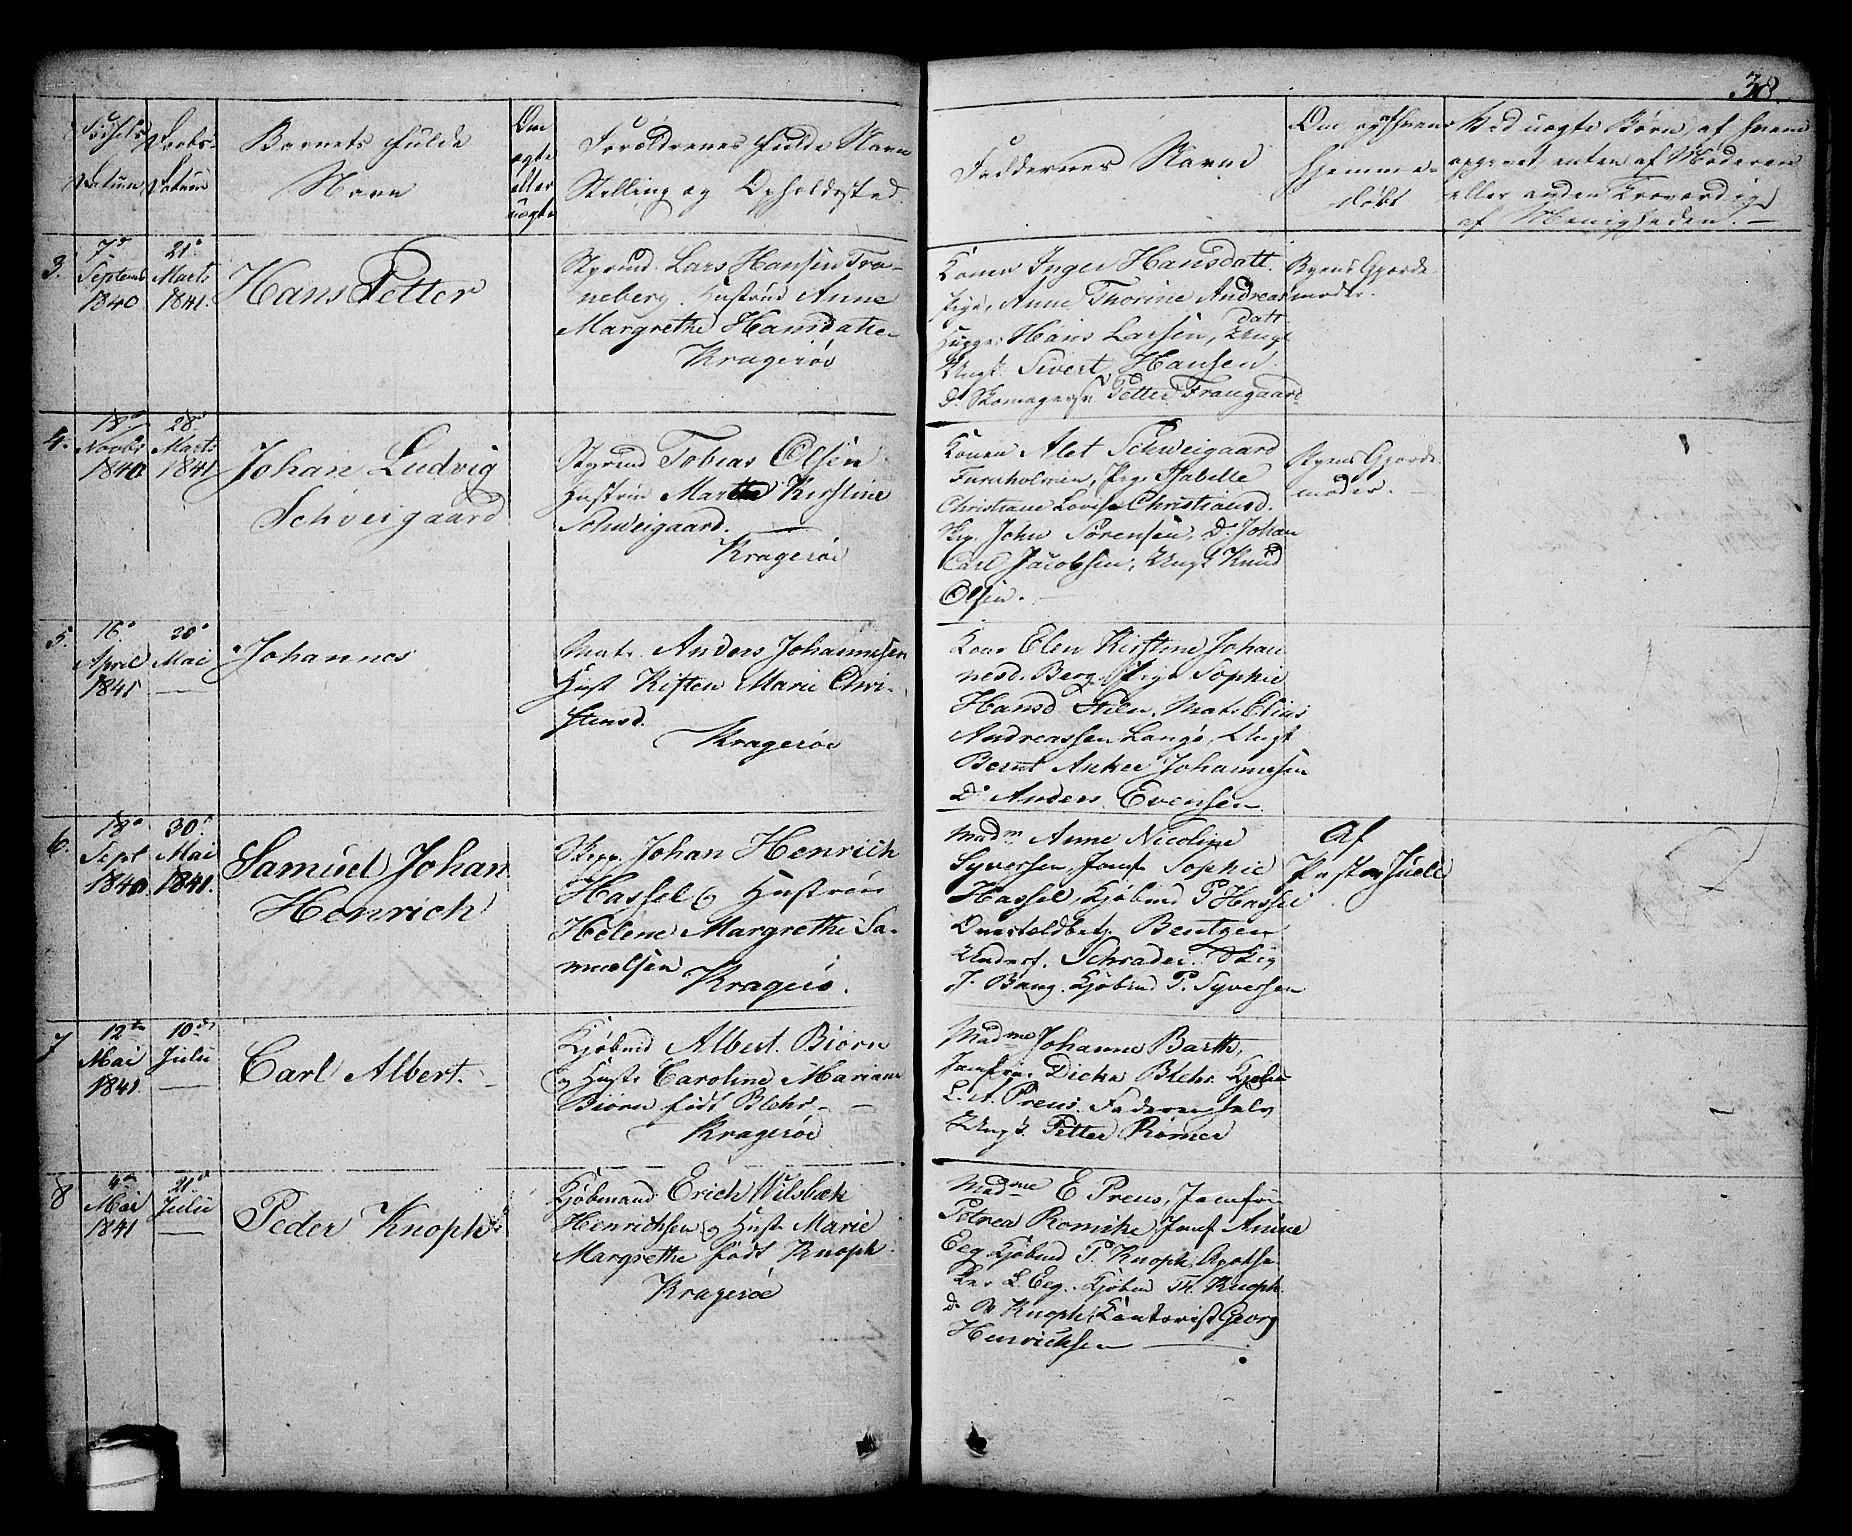 38.
Fødsels Datum
Daabs Datum
Barnets fulde Navn
Om ægte eller uægte
Forældrenes fulde Navn
Stilling og Opholdssted.
Faddernes Navne
Om og af hvem hjemmedøbt
Ved uægte Børn, af hvem
opgivet, enten af Moderen
eller anden Troværdig
af Menigheden. —
3.
7de
Septemb
1840
21de
Marts
1841.
Hans Petter
Styrmd. Lars Hansen Tra-
neberg. Hustrue Anne
Margrethe Hansdatte-
Kragerøe
Konen Inger Hansdatt.
Pige, Anne Thorine Andreas
datt
Hans Larsen, Ungk
Ungk. Sivert Hansen
do. Skomagersv. Petter Frangaard
Byens Gjorde-
moder.
4.
18de
Novbr
1840
28de
Marts
1841
Johan Ludvig
Schveigaard
Styrmd Tobias Olsen
Hustrue Martha Kirstine
Schweigaard. —
Kragerøe
Konen Alet Schweigaard
Furuholmen, Pige Isabelle
Christiane Lovise Christiansd.
John Sørensen, Do Johan
Carl Jacobsen, Ungk Knud
Olsen. —
Byens Gjorde-
moder. —
5.
16de
April
1841
20de
Mai
—
Johannes
Matr. Anders Johannesen
Hust Kisten Marie Chri-
stensd.
Kragerøe
Kone Elen Kirstine Johan
nesd. Berg, Pige Sophie
Hansd Stilen, Matr Elias
Andreassen Langø, Ungk
Bernt Anker Johannesen
Do Anders Evensen
6.
18de
Sept
1840.
30te
Mai
1841.
Samuel Johan
Henrich
Skipp. Johan Henrich
Hassel og Hustrue
Helene Margrethe Sa-
muelsen
Kragerø.
Madm Anne Nicoline
Syversen, Jomf Sophie
Hassel, Kjøbmd P Hassel
Overtoldbetj. Bentzen
Schrader. Skip
J. Bang. Kjøbmd P. Syversen
Af
Pastor Juell
7
12te
Mai
1841.
10de
Julii
—
Carl Albert. —
Kjøbmd Albert Biørn
og Hustr Caroline Mariane
Biørn født Blehr — —
Kragerøe
Madme Johanne Barth,
Jomfrue Dicka Blehr. Kjøbm
L. A. Preus. Faderen selv
Ungk. Petter Rømer
8
4de
Mai
1841
21de
Julii
—
Peder Knoph
Kjøbmand Erich Wilsbæk
Henrichsen og Hust Marie
Margrethe født Knoph.
Kragerøe
Madme E Preus, Jomfru
Petrea Romcke Jomf Anine
Eeg Kjøbmd P. Knoph, Apothe-
ker L. Eeg. Kjøbmd Th. Knoph.
do P Knoph, Kontorist Georg
Henrichsen —